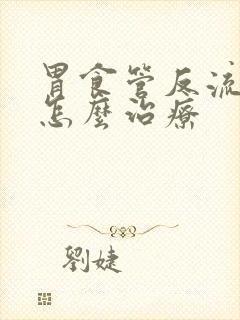 胃食管反流
怎麼治療
劉婕